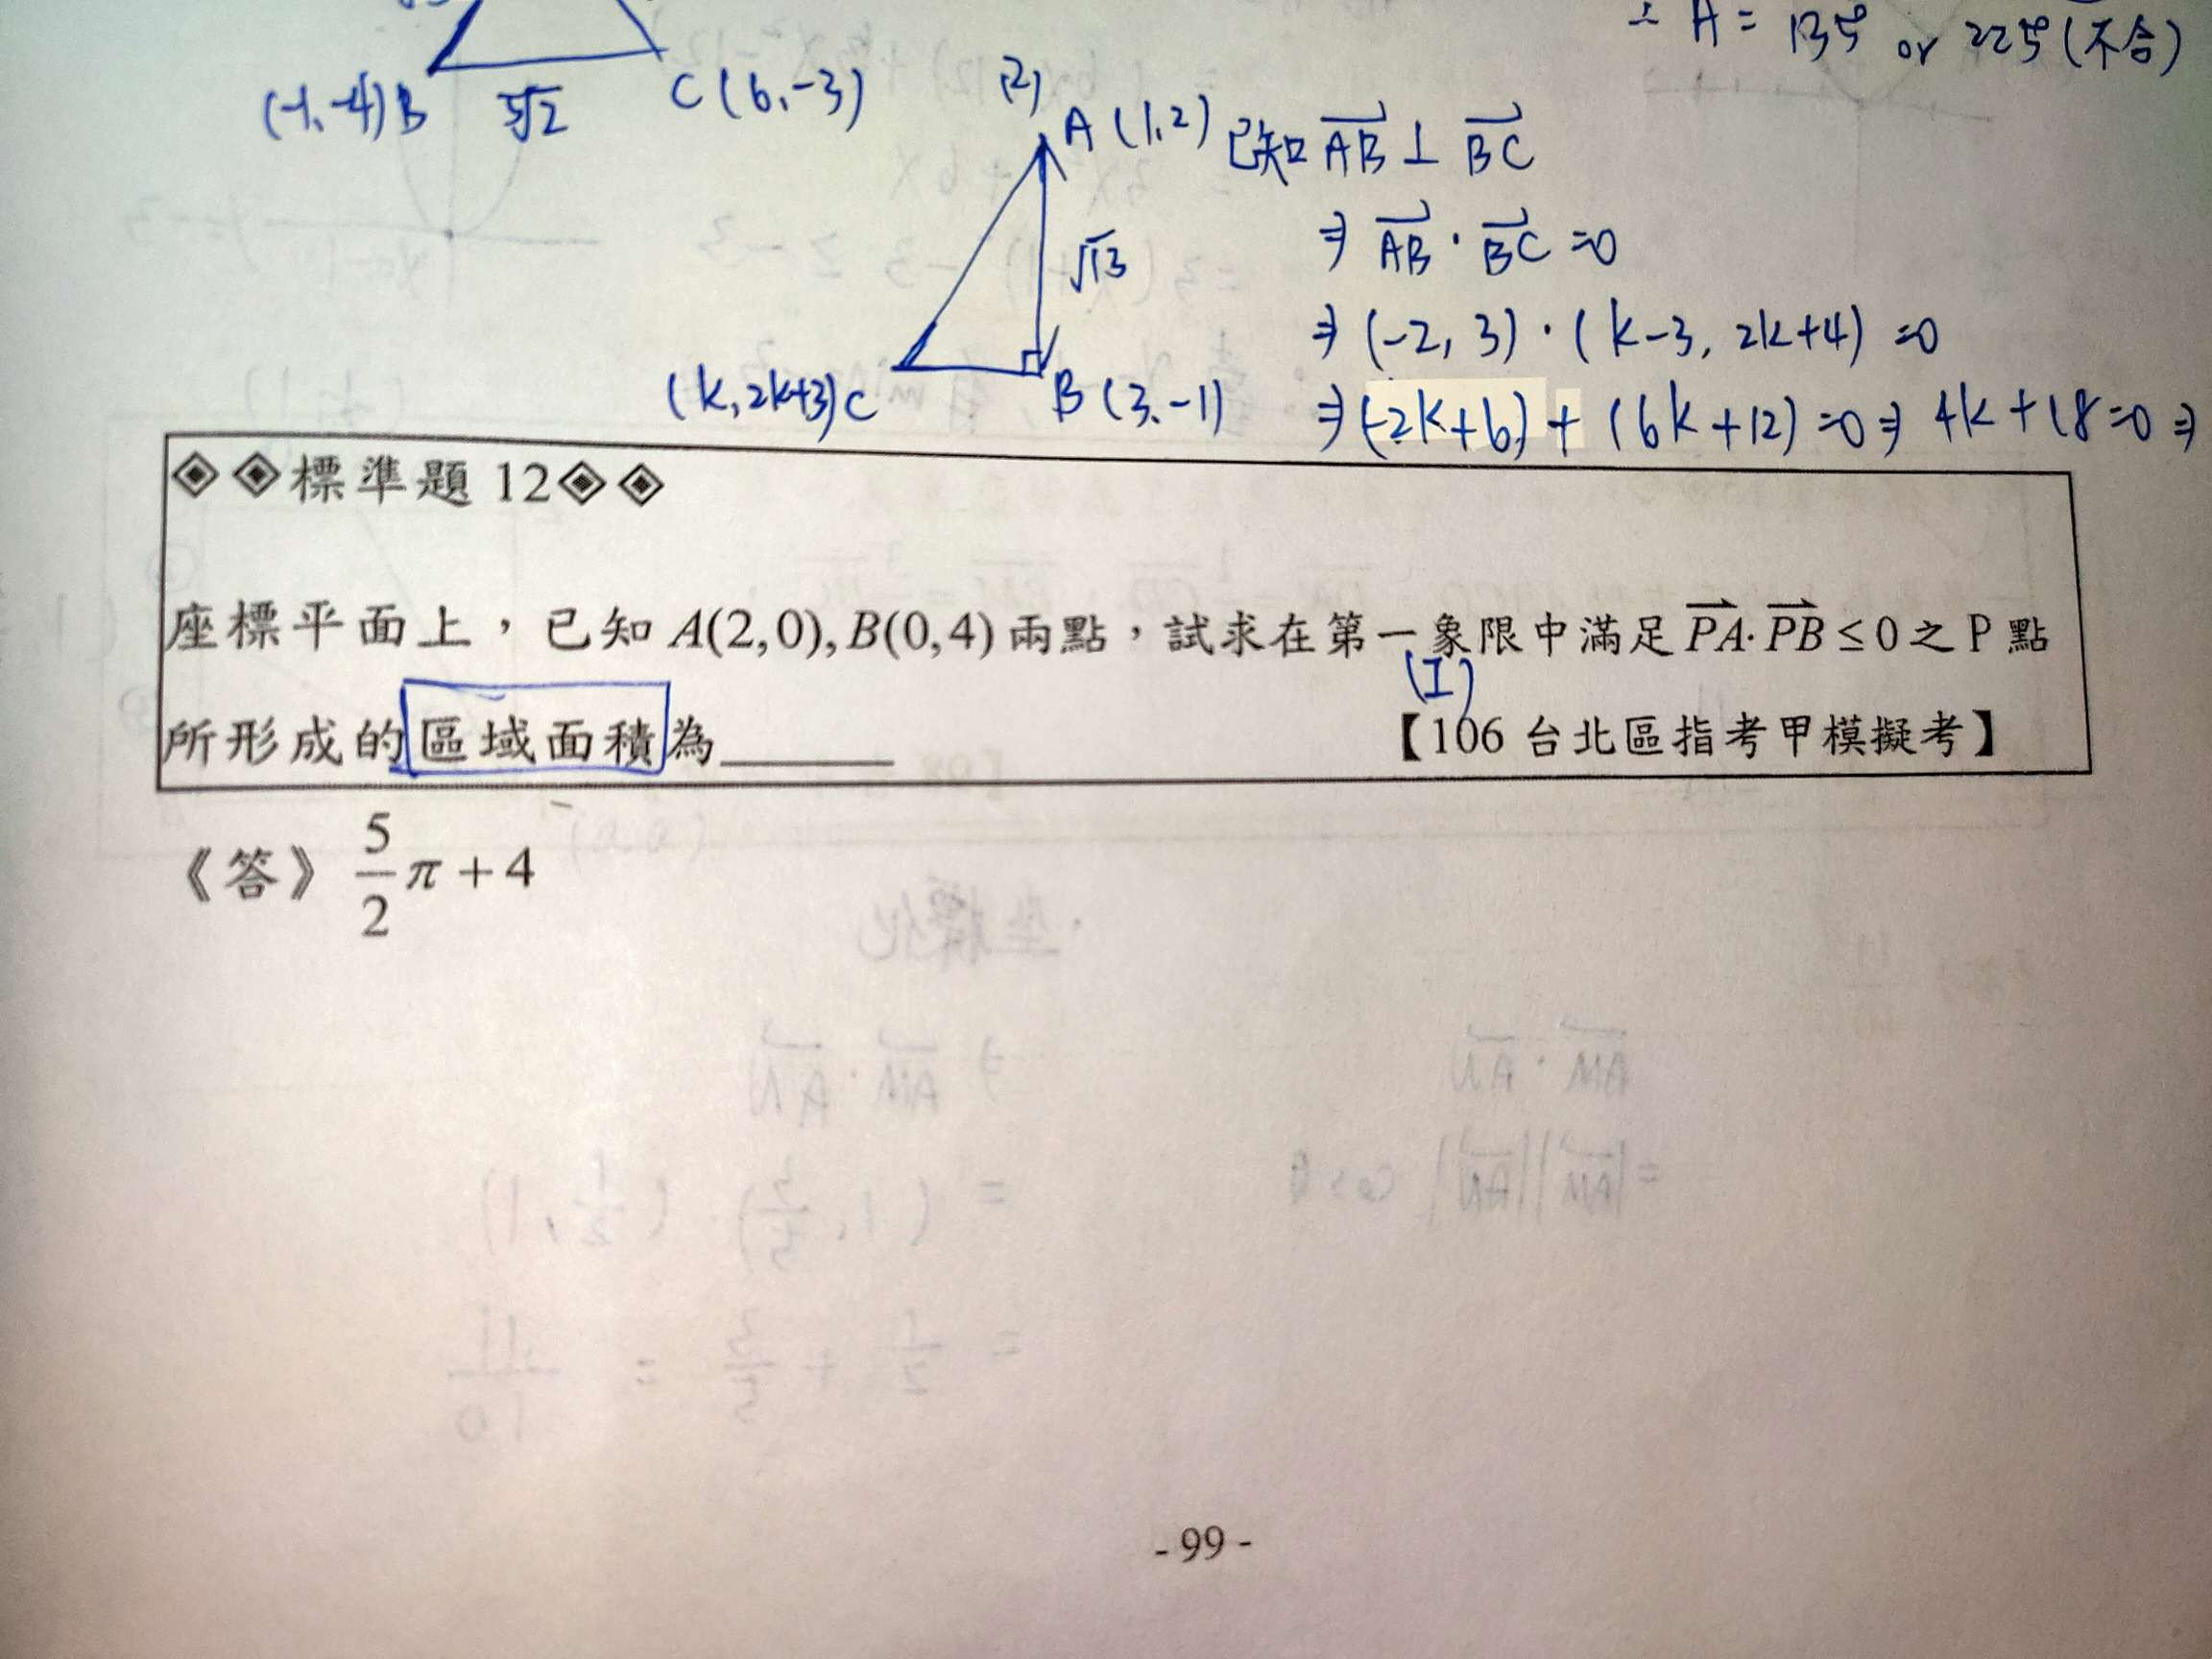 ∴ A = 135° or 225° (不合)
(-1,-4) B 5√2 C (6,-3)
(2)
A (1,2) 已知 AB ⊥ BC
⇒ AB · BC =0
√13
⇒ (-2, 3) · (k-3, 2k+4) =0
(k, 2k+3) C B (3,-1) ⇒ (-2k+6) + (6k+12) =0 ⇒ 4k+18=0 ⇒
◈◈標準題 12◈◈
座標平面上，已知 A(2,0), B(0,4) 兩點，試求在第一象限中滿足 PA·PB ≤ 0 之 P 點
(I)
所形成的區域面積為______ 【106 台北區指考甲模擬考】
《答》 5/2 π + 4
- 99 -